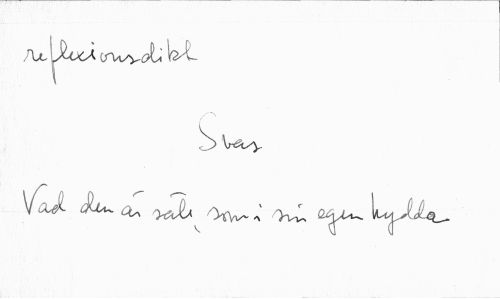 reflexionsdikt
Svar
Vad den är säll, som i sin egen hydda